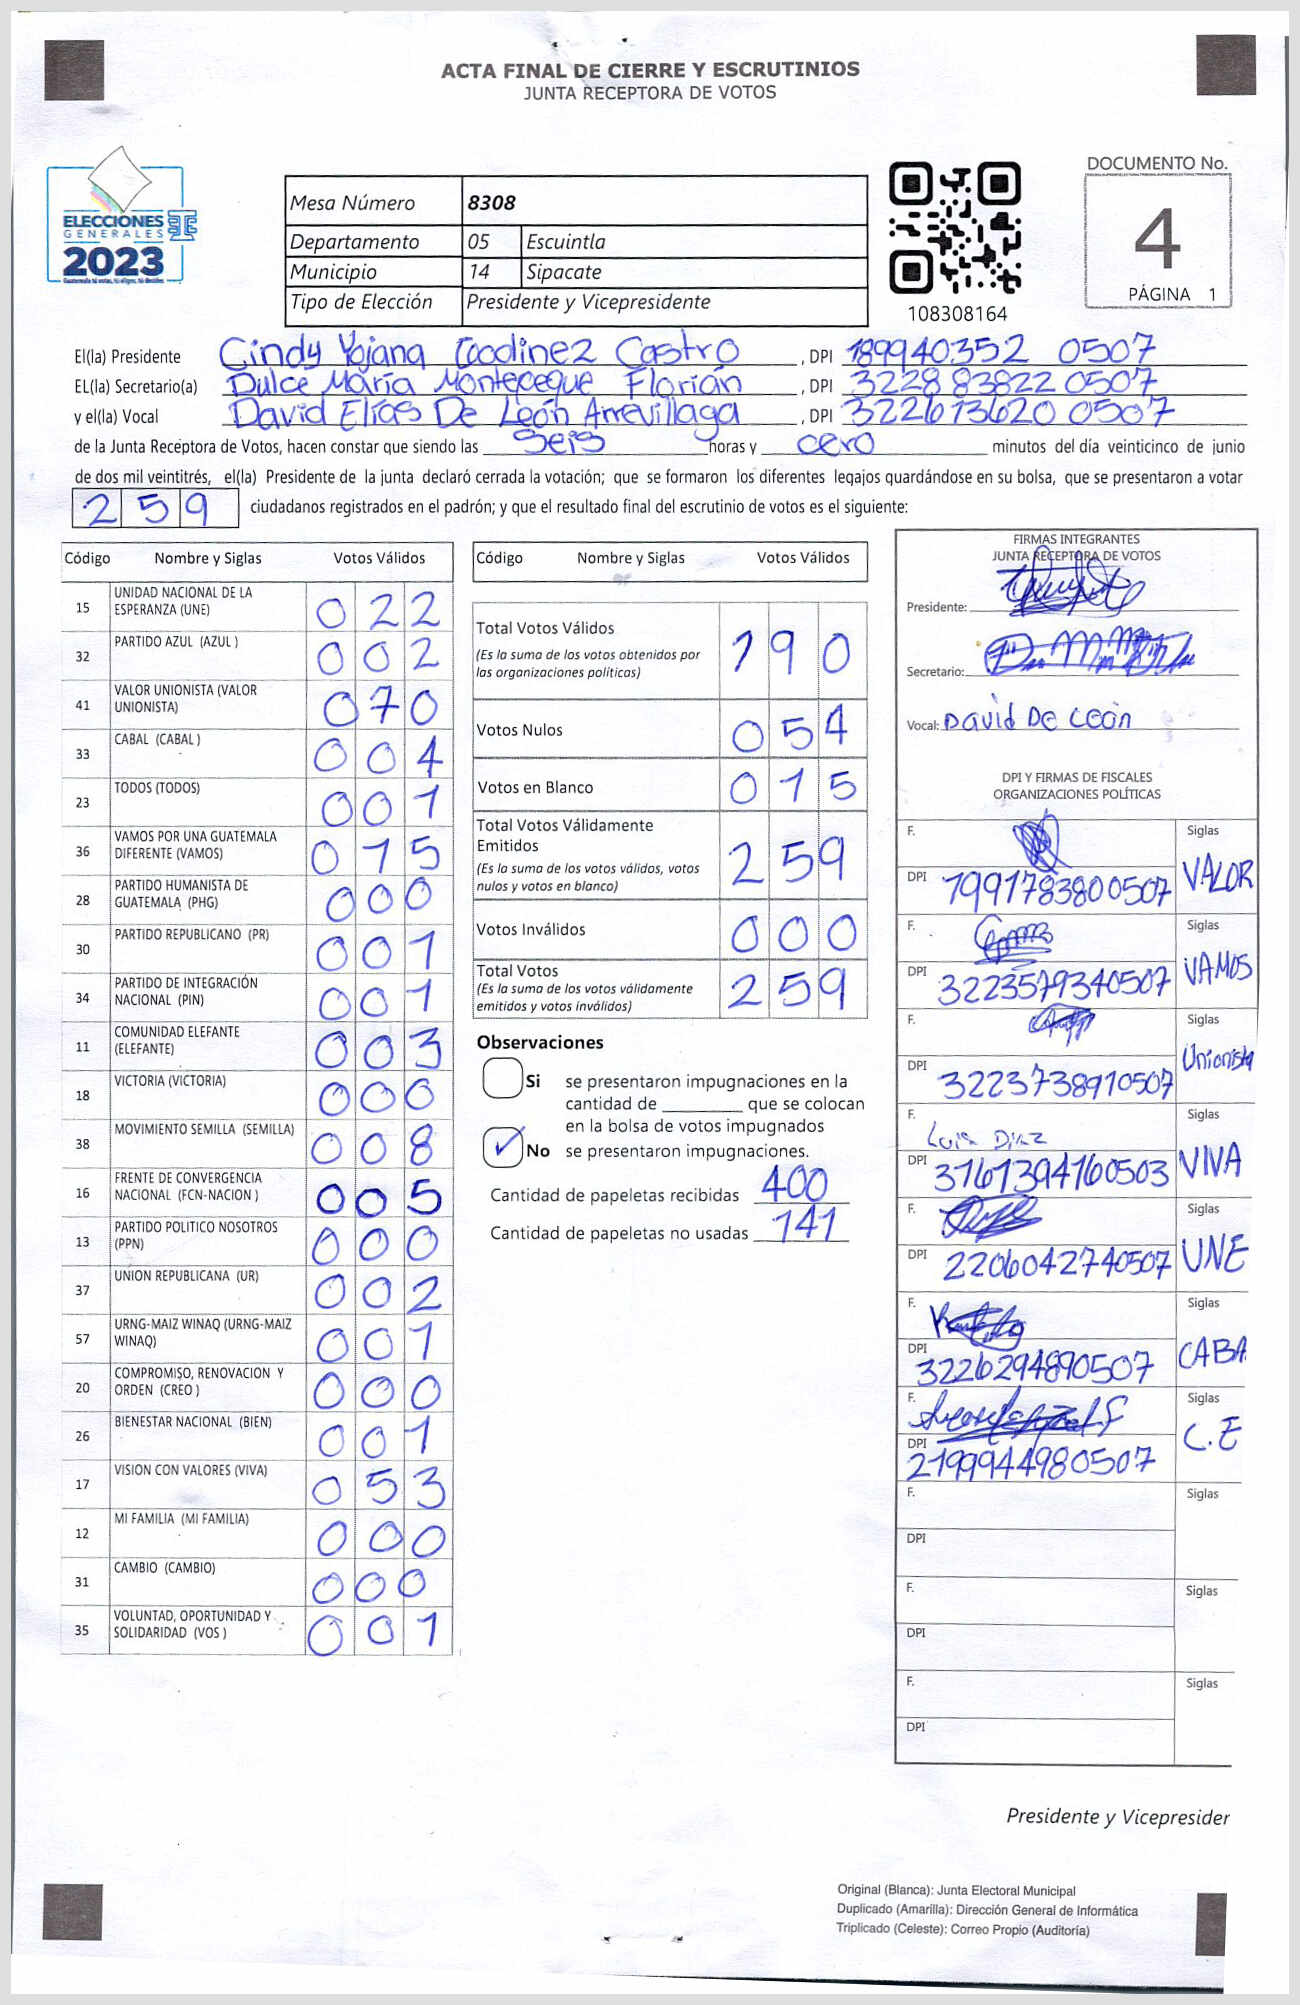 ACTA FINAL DE CIERRE Y ESCRUTINIOS
JUNTA RECEPTORA DE VOTOS
ELECCIONES
GENERALES
2023
Mesa Número 8308
Departamento 05 Escuintla
Municipio 14 Sipacate
Tipo de Elección Presidente y Vicepresidente
108308164
DOCUMENTO No.
4
PÁGINA 1
El(la) Presidente Cindy Yojana Castro , DPI 189940352 0507
EL(la) Secretario(a) Dulce María Montepeque Florián , DPI 322883822 0507
y el(la) Vocal David Elías De León Arrevillaga , DPI 322613620 0507
de la Junta Receptora de Votos, hacen constar que siendo las seis horas y cero minutos del día veinticinco de junio
de dos mil veintitrés, el(la) Presidente de la junta declaró cerrada la votación; que se formaron los diferentes legajos guardándose en su bolsa, que se presentaron a votar
259 ciudadanos registrados en el padrón; y que el resultado final del escrutinio de votos es el siguiente:
Código Nombre y Siglas Votos Válidos
15 UNIDAD NACIONAL DE LA ESPERANZA (UNE) 022
32 PARTIDO AZUL (AZUL ) 002
41 VALOR UNIONISTA (VALOR UNIONISTA) 070
33 CABAL (CABAL ) 004
23 TODOS (TODOS) 001
36 VAMOS POR UNA GUATEMALA DIFERENTE (VAMOS) 015
28 PARTIDO HUMANISTA DE GUATEMALA (PHG) 000
30 PARTIDO REPUBLICANO (PR) 001
34 PARTIDO DE INTEGRACIÓN NACIONAL (PIN) 001
11 COMUNIDAD ELEFANTE (ELEFANTE) 003
18 VICTORIA (VICTORIA) 000
38 MOVIMIENTO SEMILLA (SEMILLA) 008
16 FRENTE DE CONVERGENCIA NACIONAL (FCN-NACION ) 005
13 PARTIDO POLITICO NOSOTROS (PPN) 000
37 UNION REPUBLICANA (UR) 002
57 URNG-MAIZ WINAQ (URNG-MAIZ WINAQ) 001
20 COMPROMISO, RENOVACION Y ORDEN (CREO ) 000
26 BIENESTAR NACIONAL (BIEN) 001
17 VISION CON VALORES (VIVA) 053
12 MI FAMILIA (MI FAMILIA) 000
31 CAMBIO (CAMBIO) 000
35 VOLUNTAD, OPORTUNIDAD Y SOLIDARIDAD (VOS ) 001
Código Nombre y Siglas Votos Válidos
Total Votos Válidos 190
(Es la suma de los votos obtenidos por
las organizaciones políticas)
Votos Nulos 054
Votos en Blanco 015
Total Votos Válidamente
Emitidos 259
(Es la suma de los votos válidos, votos
nulos y votos en blanco)
Votos Inválidos 000
Total Votos 259
(Es la suma de los votos válidamente
emitidos y votos inválidos)
Observaciones
Si se presentaron impugnaciones en la
cantidad de ________ que se colocan
en la bolsa de votos impugnados
✓ No se presentaron impugnaciones.
Cantidad de papeletas recibidas 400
Cantidad de papeletas no usadas 141
FIRMAS INTEGRANTES
JUNTA RECEPTORA DE VOTOS
Presidente:
Secretario:
Vocal: David De León
DPI Y FIRMAS DE FISCALES
ORGANIZACIONES POLÍTICAS
F. Siglas VALOR
DPI 1991783800507
F. Siglas VAMOS
DPI 3223579340507
F. Siglas Unionista
DPI 3223738910507
F. Luis Diaz Siglas VIVA
DPI 3161394160503
F. Siglas UNE
DPI 2206042740507
F. Siglas CABA
DPI 3226294890507
F. Siglas C.E
DPI 2199944980507
F. Siglas
DPI
F. Siglas
DPI
F. Siglas
DPI
Presidente y Vicepresider
Original (Blanca): Junta Electoral Municipal
Duplicado (Amarilla): Dirección General de Informática
Triplicado (Celeste): Correo Propio (Auditoría)